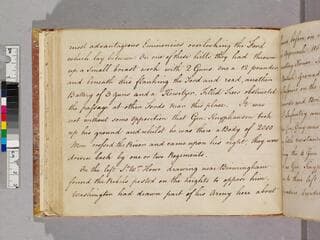 most advantagious Eminences overlooking the Ford
which lay between. On one of these hills they had thrown
up a small breast work with 2 Guns one a 12 pounder
and beneath this flanking the Ford and road, another
Battery of 3 Guns and a Howitzer. Felled Trees obstructed
the passage at other Fords near this place. It was
not without some opposition that Gen. Knyphausen took
up his ground and whilst he was there a Body of 2000
Men crossed the River and came upon his right, they were
drove back by one or two Regiments.
On the left Sr. Wm. Howe drawing near Birmingham
found the Rebels posted on the heights to oppose him.
Washington had drawn part of his Army here about